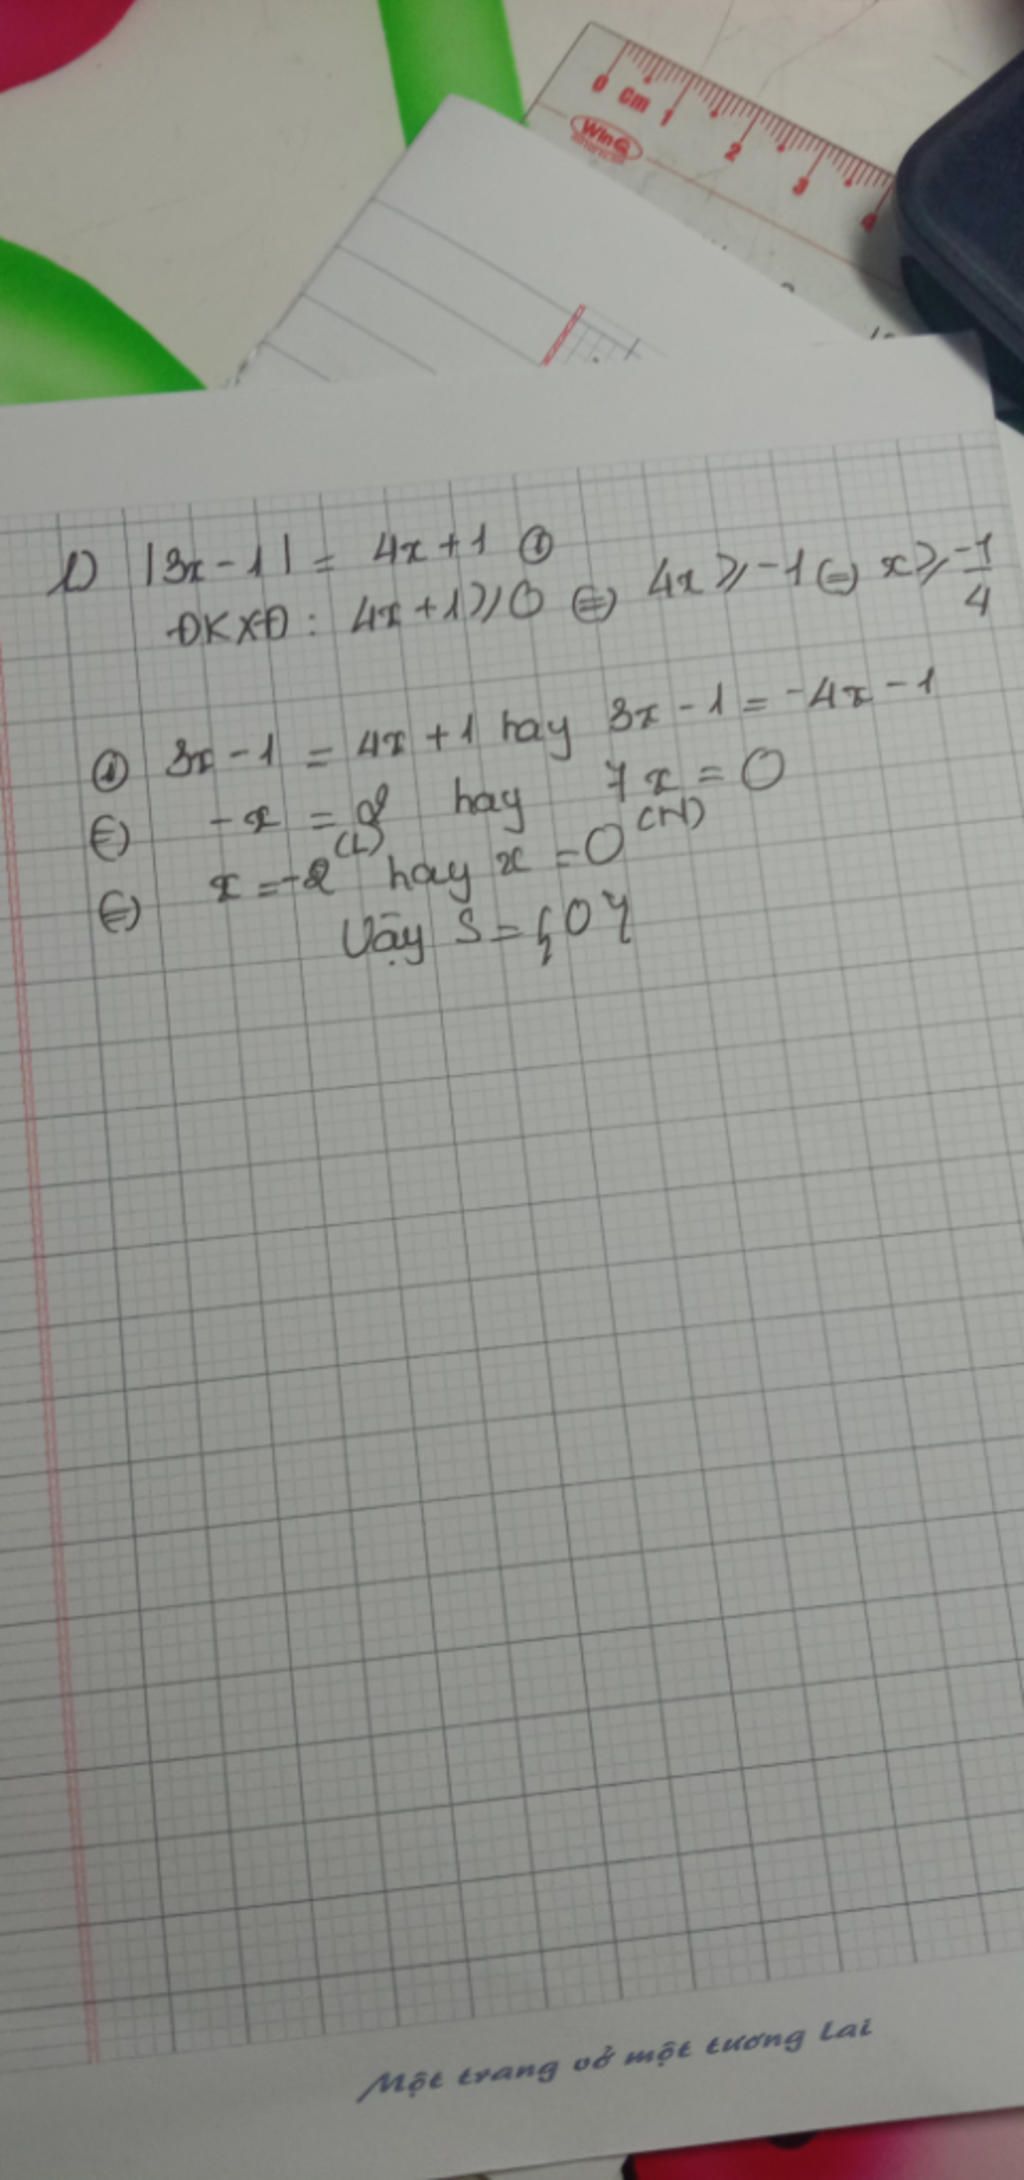 0 Cm 1 2 3 4
WinQ
1) |3x - 1| = 4x + 1 ①
ĐKXĐ: 4x + 1 ⩾ 0 ⇔ 4x ⩾ -1 ⇔ x ⩾ -1/4
① 3x - 1 = 4x + 1 hay 3x - 1 = -4x - 1
⇔ -x = 2 hay 7x = 0
⇔ x = -2 (L) hay x = 0 (N)
Vậy S = {0}
Một trang vở một tương lai